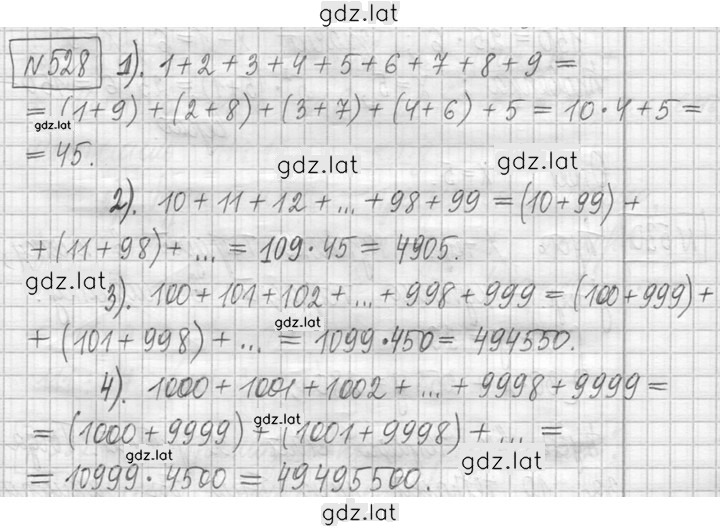 gdz.lat
№528 1). 1+2+3+4+5+6+7+8+9=
= (1+9) + (2+8) + (3+7) + (4+6) + 5 = 10·4+5=
gdz.lat
= 45.
gdz.lat gdz.lat
2). 10+11+12+...+98+99=(10+99)+
+(11+98)+ ... = 109·45 = 4905.
gdz.lat
3). 100+101+102+...+998+999=(100+999)+
gdz.lat
+ (101+998) + ... = 1099·450= 494550.
4). 1000+1001+1002+...+9998+9999=
gdz.lat
= (1000+9999) + (1001+9998) + ... =
gdz.lat gdz.lat
= 10999·4500 = 49495500.
gdz.lat